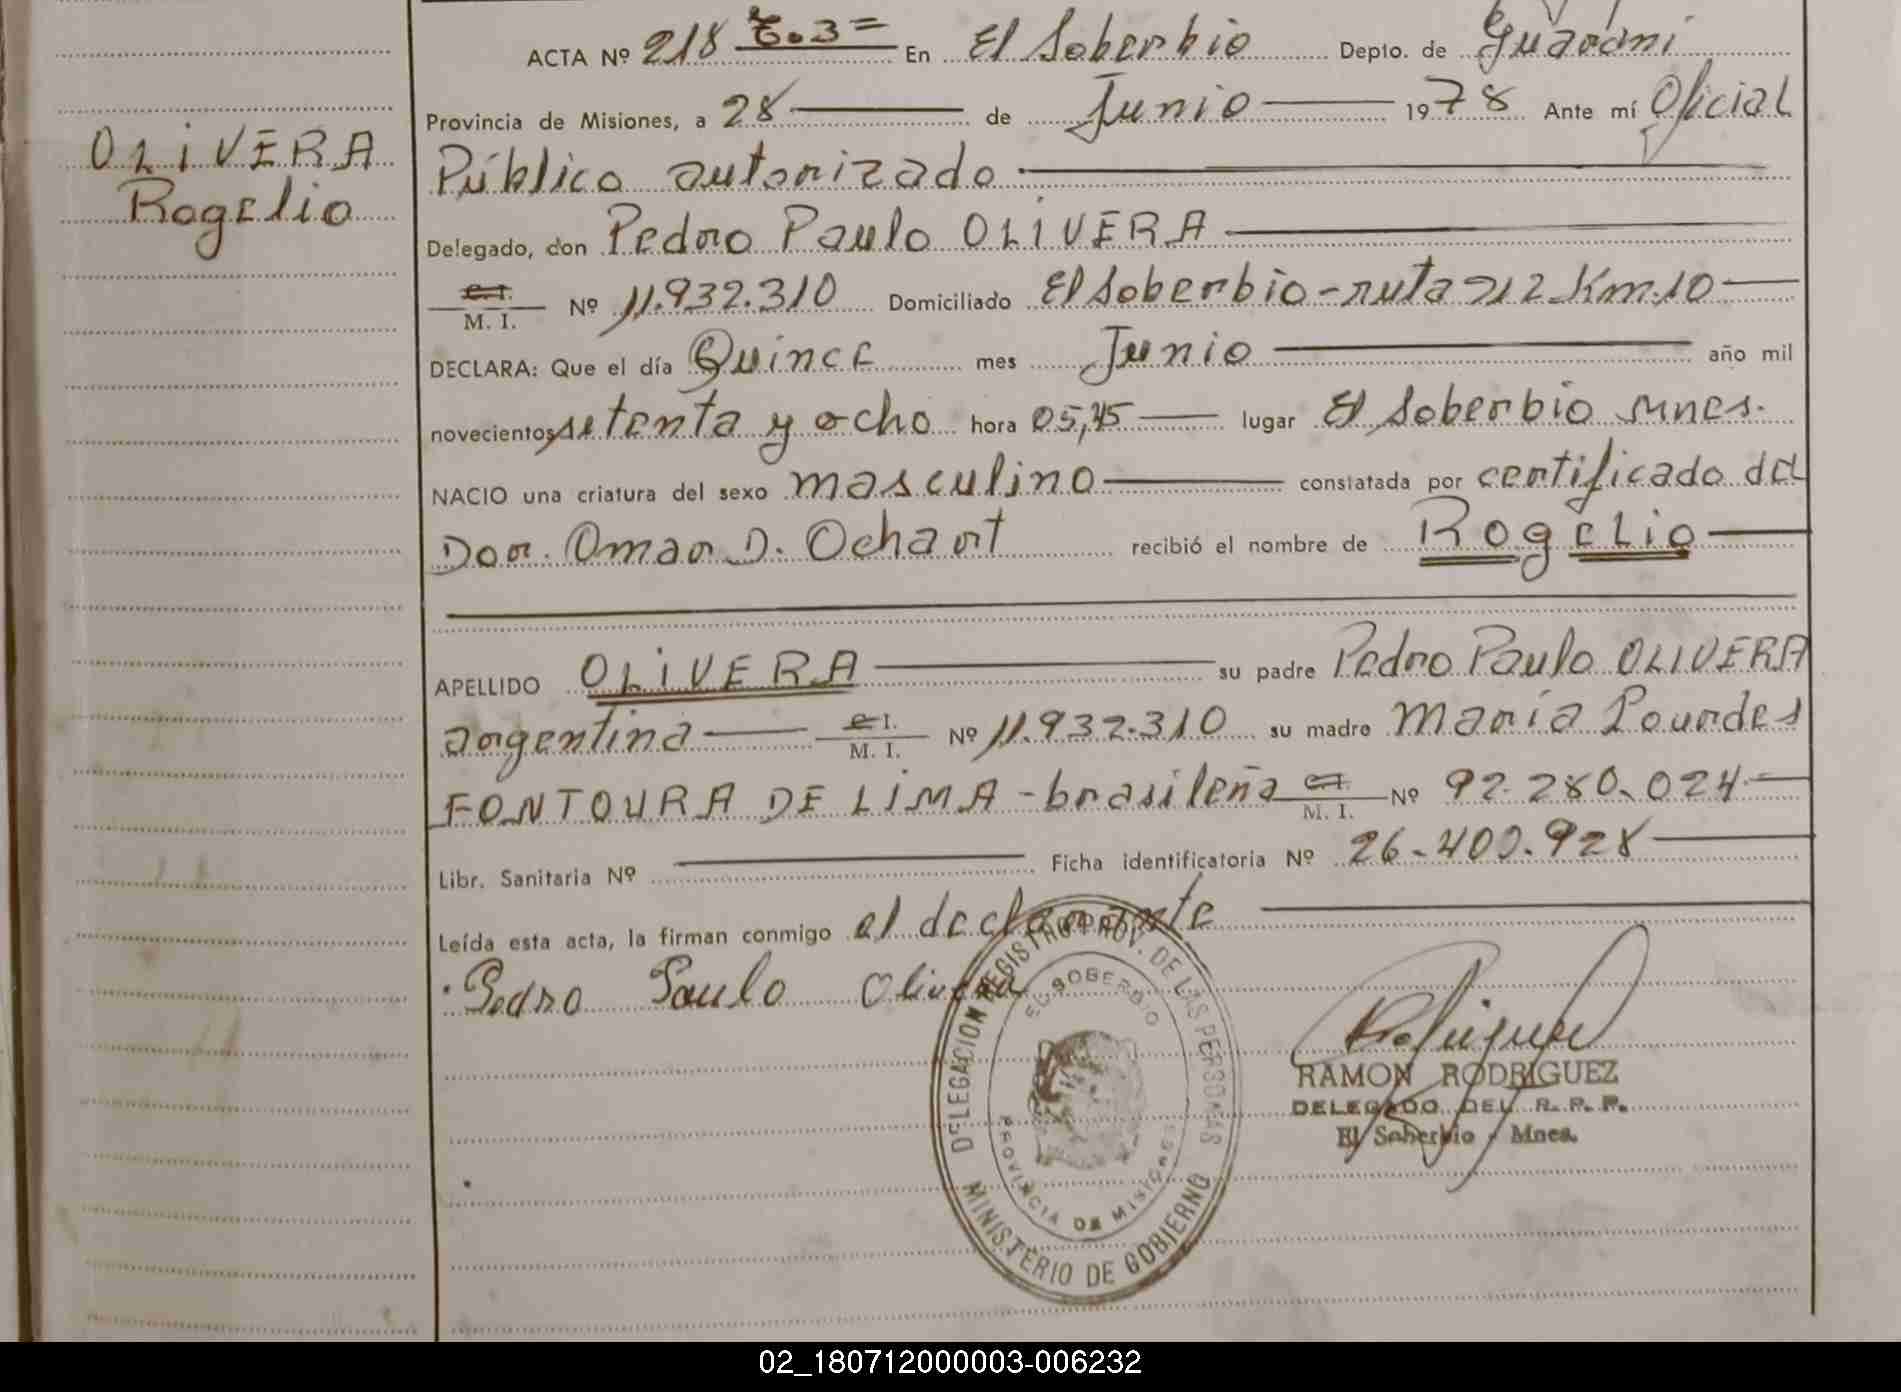 ACTA Nº 218 Tº.3= En El Soberbio Depto. de Guaraní
Provincia de Misiones, a 28 de Junio 1978 Ante mí Oficial
Público autorizado
Delegado, don Pedro Paulo OLIVERA
C.I. M. I. Nº 11.932.310 Domiciliado El Soberbio-ruta 212 Km.10
DECLARA: Que el día Quince mes Junio año mil
novecientos setenta y ocho hora 05,45 lugar El Soberbio Mnes.
NACIO una criatura del sexo masculino constatada por certificado del
Dor. Omar D. Ochart recibió el nombre de Rogelio
APELLIDO OLIVERA su padre Pedro Paulo OLIVERA
argentina C.I. M. I. Nº 11.932.310 su madre María Lourdes
FONTOURA DE LIMA-brasileña C.I. M. I. Nº 92.280.024
Libr. Sanitaria Nº Ficha identificatoria Nº 26.400.928
Leída esta acta, la firman conmigo el declarante
Pedro Paulo Olivera
OLIVERA
Rogelio
DELEGACION REGISTRO PROV. DE LAS PERSONAS
EL SOBERBIO
PROVINCIA DE MISIONES
MINISTERIO DE GOBIERNO
Rodriguez
RAMON RODRIGUEZ
DELEGADO DEL R. P. P.
El Soberbio - Mnes.
02_180712000003-006232